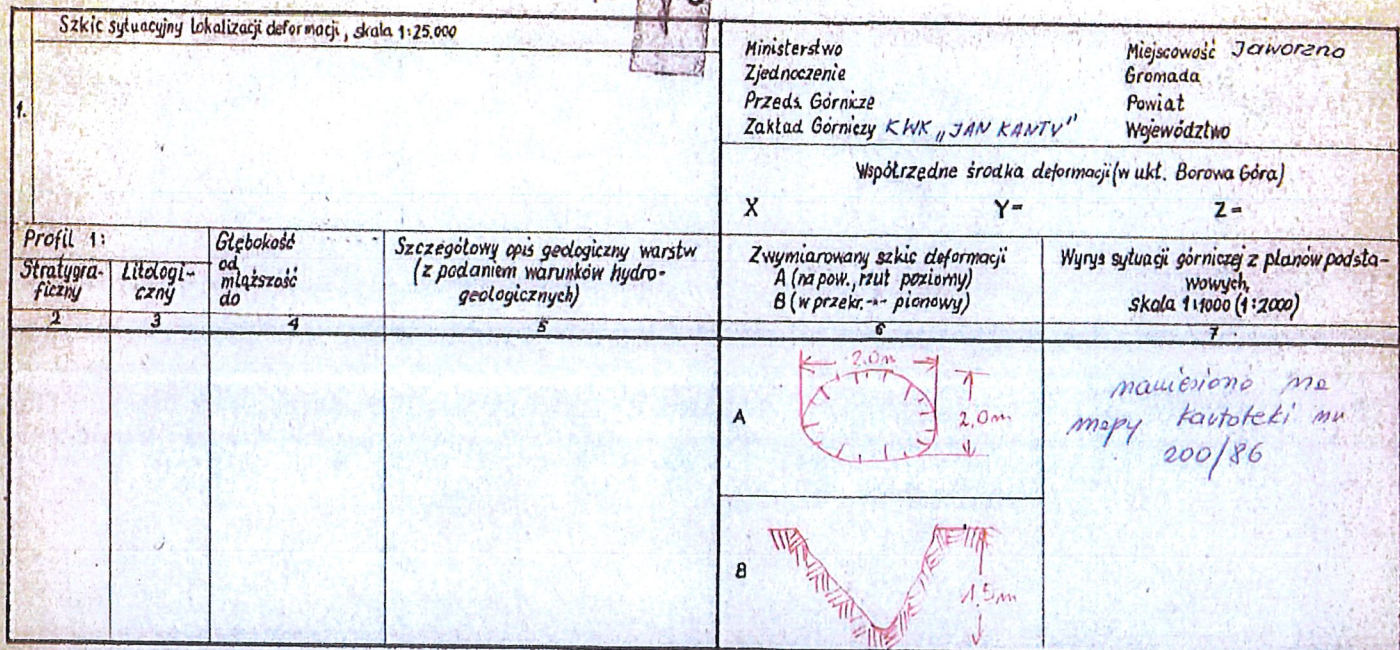 Szkic sytuacyjny lokalizacji deformacji, skala 1:25.000
1.
Ministerstwo
Zjednoczenie
Przeds. Górnicze
Zakład Górniczy KWK „JAN KANTY"
Miejscowość Jaworzno
Gromada
Powiat
Województwo
Współrzędne środka deformacji (w ukł. Borowa Góra)
X Y= Z=
Profil 1:
Stratygra-
ficzny
Litologi-
czny
Głębokość
od
miąższość
do
Szczegółowy opis geologiczny warstw
(z podaniem warunków hydro-
geologicznych)
Zwymiarowany szkic deformacji
A (na pow., rzut poziomy)
B (w przekr. -"- pionowy)
Wyrys sytuacji górniczej z planów podsta-
wowych,
skala 1:1000 (1:2000)
2 3 4 5 6 7
A
2.0m
2.0m
naniesiono na
mapy kartoteki nr
200/86
B
1.5m